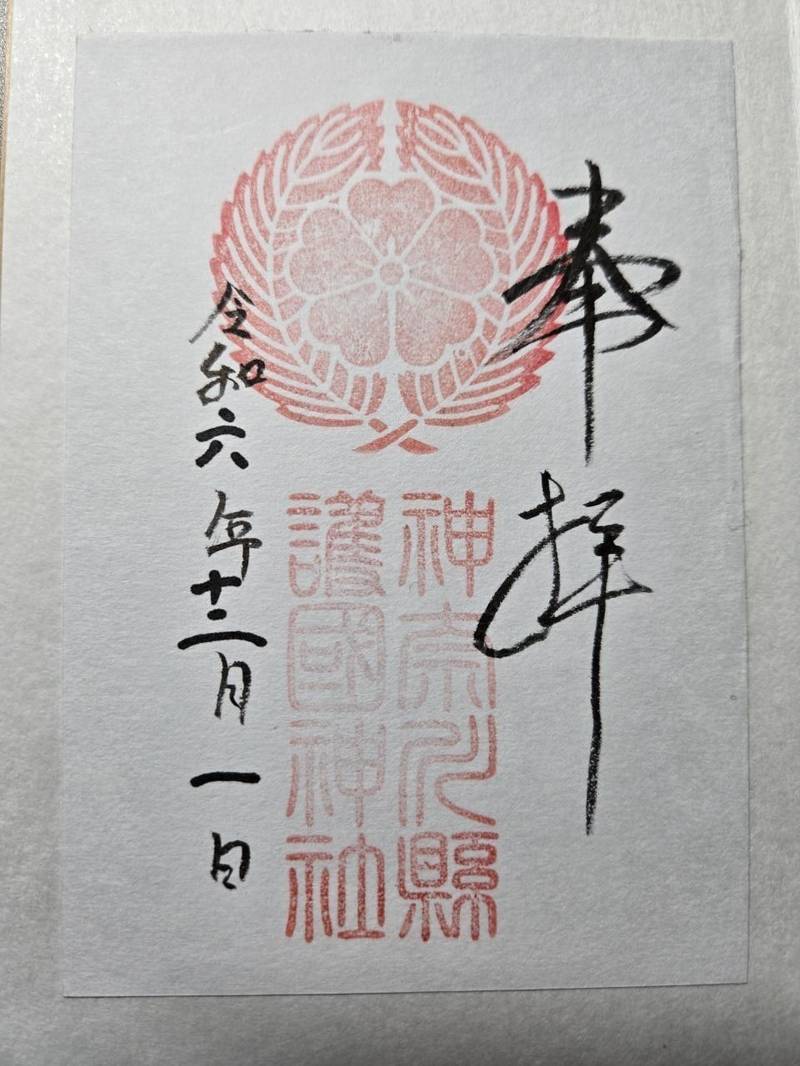 奉拝
神奈川縣
護國神社
令和六年十二月一日